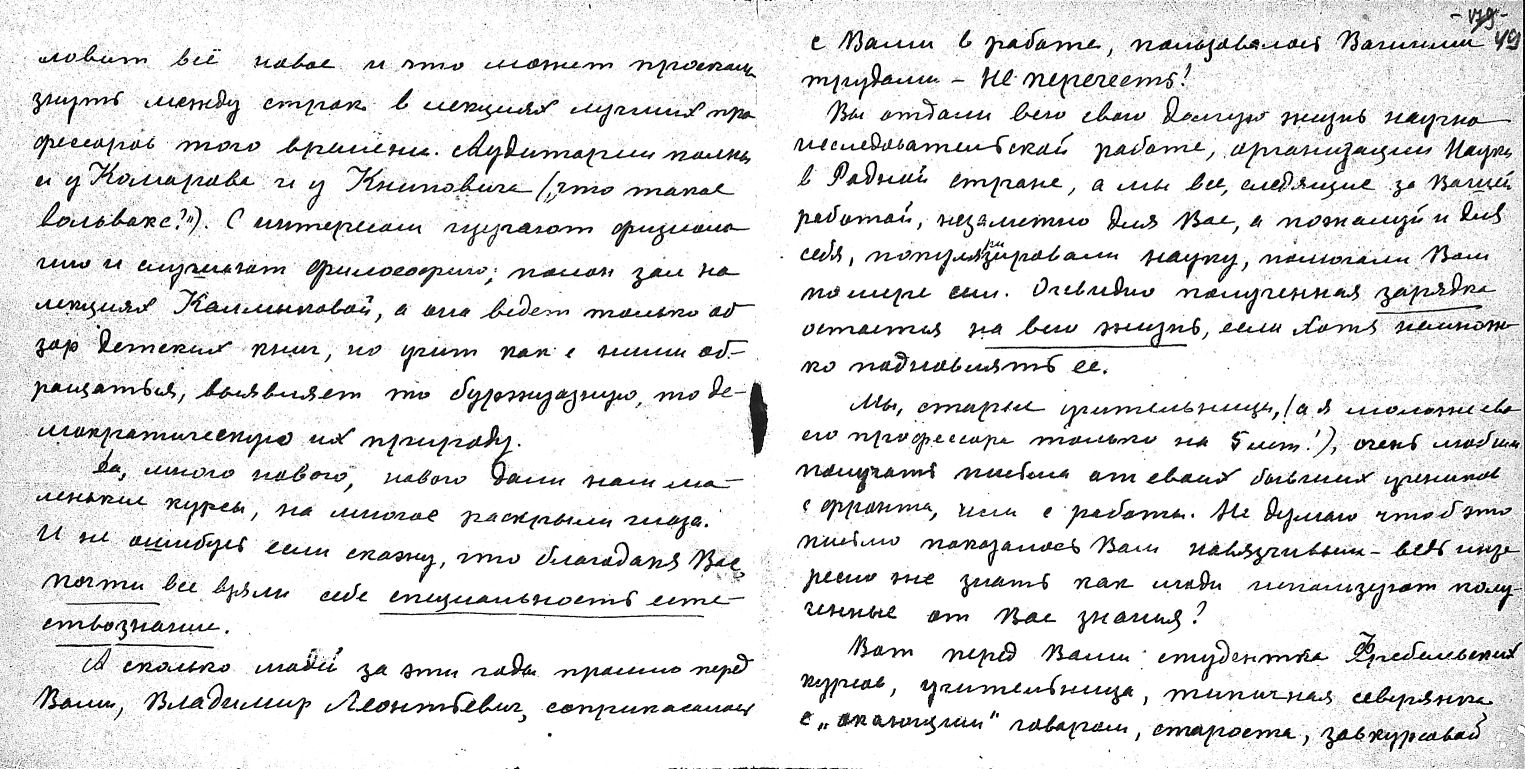 ловит всё новое и что может проскаль
знуть между строк в лекциях лучших про
фессоров того времени. Аудитории полны
и у Комарова и у Книповича („что такое
вольвокс?"). С интересом изучают физиоло
гию и слушают философию; полон зал на
лекциях Калмыковой, а она ведет только об
зор детских книг, но учит как с ними об-
ращаться, выявляет то буржуазную, то де-
мократическую их природу.
Да, много нового, нового дали нам ма-
ленькие курсы, на многое раскрыли глаза.
И не ошибусь если скажу, что благодаря Вас
почти все взяли себе специальность есте-
ствознание.
А сколько людей за эти годы прошло перед
Вами, Владимир Леонтьевич, соприкасалось
- 179 -
с Вами в работе, пользовалось Вашими
трудами – не перечесть!
Вы отдали всю свою долгую жизнь научно
исследовательской работе, организации Науки
в Родной стране, а мы все, следящие за Вашей
работой, незаметно для Вас, а пожалуй и для
себя, популяризировали науку, помогали Вам
по мере сил. Очевидно полученная зарядка
остается на всю жизнь, если хотя немнож-
ко подновлять ее.
Мы, старые учительницы, (а я моложе сво
его профессора только на 5 лет!), очень любим
получать письма от своих бывших учеников
с фронта, или с работы. Не думаю чтоб это
письмо показалось Вам навязчивым – ведь инте
ресно же знать как люди используют полу-
ченные от Вас знания?
Вот перед Вами студентка Фребельских
курсов, учительница, типичная северянка
с „окающим" говором, староста, завкурсовой